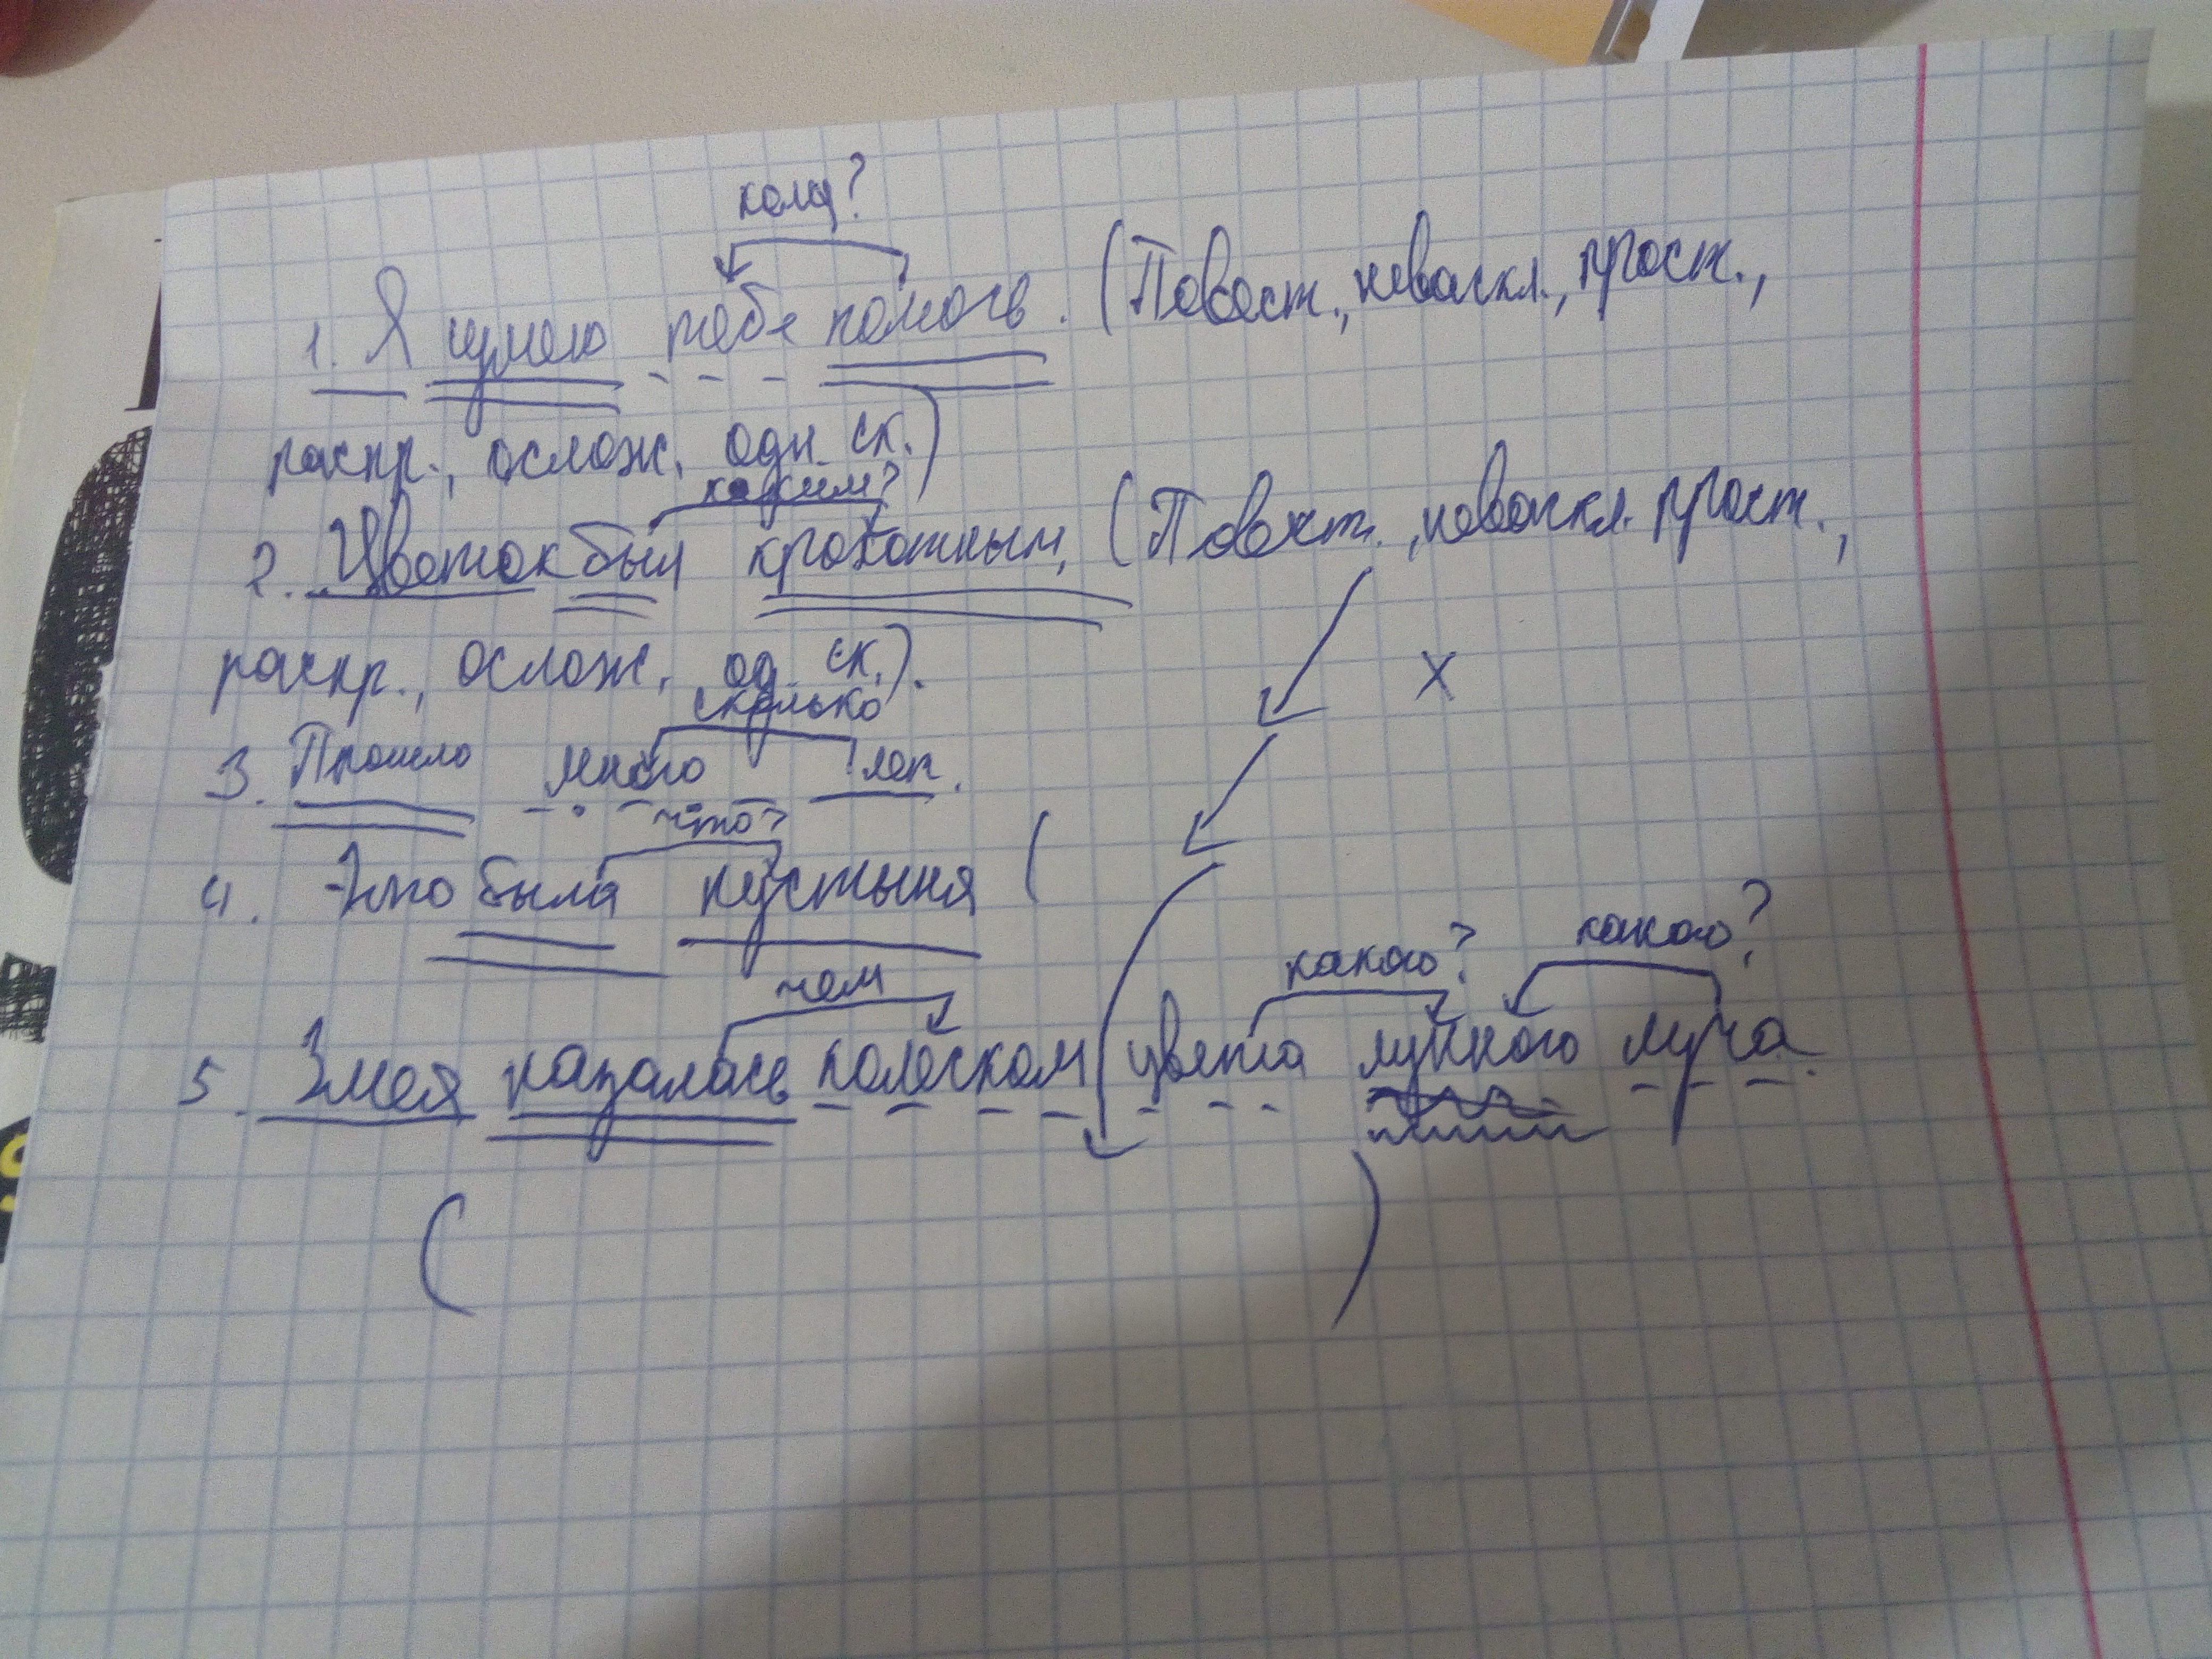 кому?
1. Я умею тебе помочь. (Повест., невоскл., прост.,
распр., ослож. одн. ск.)
каким?
2. Цветок был крохотным. (Повест., невоскл. прост.,
распр., ослож. од. ск.).
сколько
3. Прошло много лет.
что?
4. Это была пустыня (
чем какого? какого?
5. Змея казалась колёском цвета лунного луча.
( )